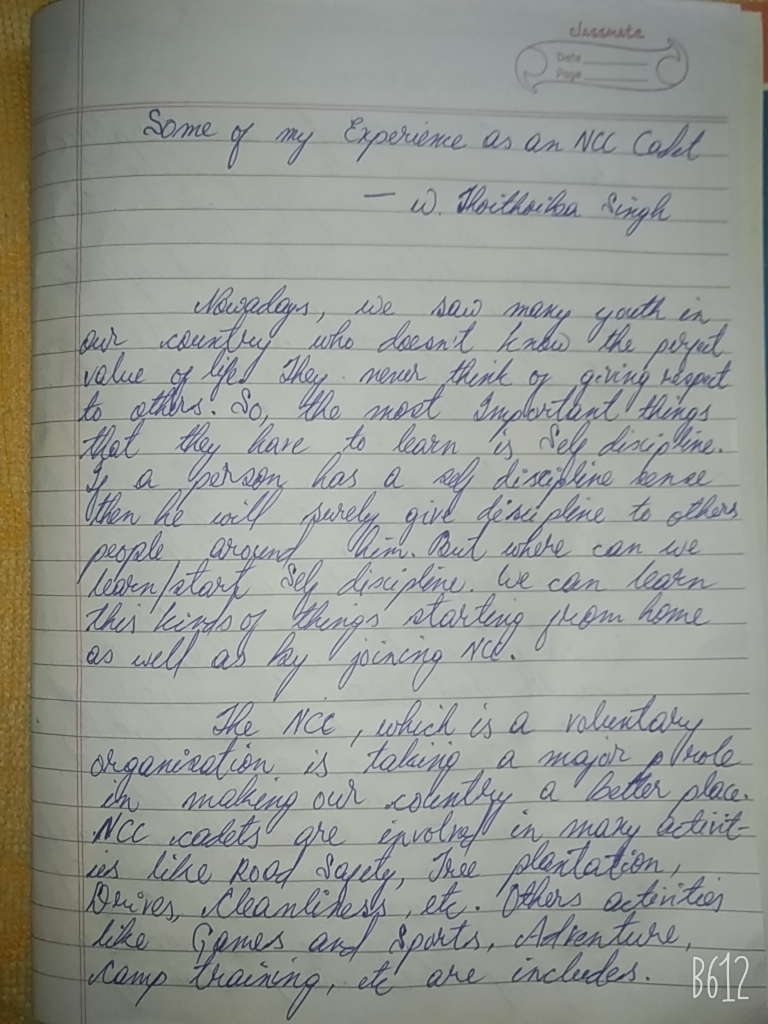 classmate
Date
Page
Some of my Experience as an NCC Cadet
— W. Thoithoiba Singh
Nowadays, we saw many youth in
our country who doesn't know the perfect
value of life. They never think of giving respect
to others. So, the most Important things
that they have to learn is Self discipline.
If a person has a self discipline sense
then he will surely give discipline to others
people around him. But where can we
learn/start Self discipline. We can learn
this kinds of things starting from home
as well as by joining NCC.
The NCC, which is a voluntary
organization is taking a major role
in making our country a better place.
NCC cadets are involved in many activit-
ies like Road Safety, Tree plantation,
Drives, Cleanliness, etc. Others activities
like Games and Sports, Adventure,
Camp training, etc are includes.
B612